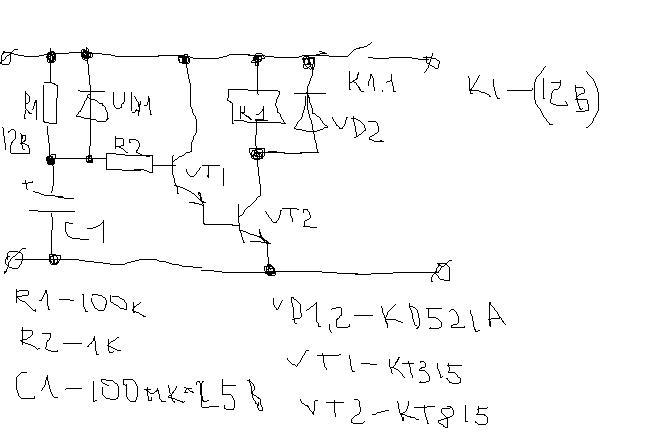 R1
VD1
K1
K1.1
K1-(12В)
12В
R2
VD2
VT1
VT2
+
C1
R1-100к
R2-1к
C1-100мк×25В
VD1,2-КД521А
VT1-КТ315
VT2-КТ815